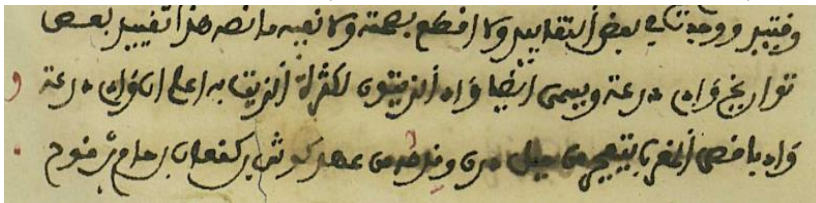 ووجدت في بعض التقاييد ولا اقطع بصحته ولا نعيه ما نصه هذا تقييد بعض
تواريخ واد درعة ويسمى أيضا واد الزيتون لكثرة الزيت به اعلم ان واد درعة
واد باقصى المغرب يتفجر من جبل درن من عهد كوش بن كنعان بن حام بن نوح